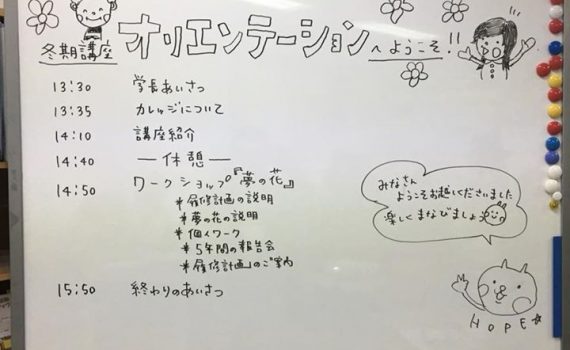 冬期講座 オリエンテーションへようこそ!!
13:30 学長あいさつ
13:35 カレッジについて
14:10 講座紹介
14:40 ―休憩―
14:50 ワークショップ『夢の花』
*履修計画の説明
*夢の花の説明
*個人ワーク
*5年間の報告会
*「履修計画」のご案内
15:50 終わりのあいさつ
みなさん
ようこそお越しくださいました
楽しくまなびましょ
HOPE☆